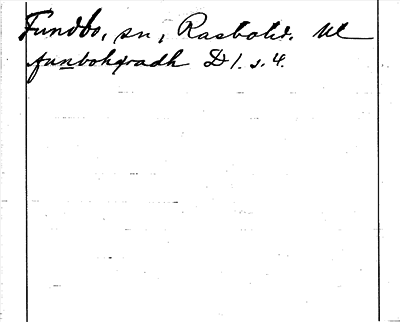 Funbo, sn, Rasbo hd. Ul
funbohgradh D1. s. 4.